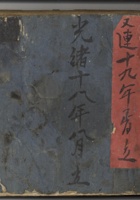 又連十九年春立
光緒十八年八月立